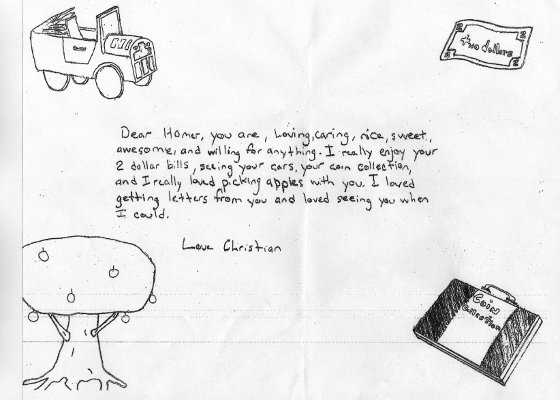 two dollars
Dear Homer, you are, Loving, caring, nice, sweet,
awesome, and willing for anything. I really enjoy your
2 dollar bills, seeing your cars, your coin collection,
and I really loved picking apples with you. I loved
getting letters from you and loved seeing you when
I could.
Love Christian
Coin
Collection